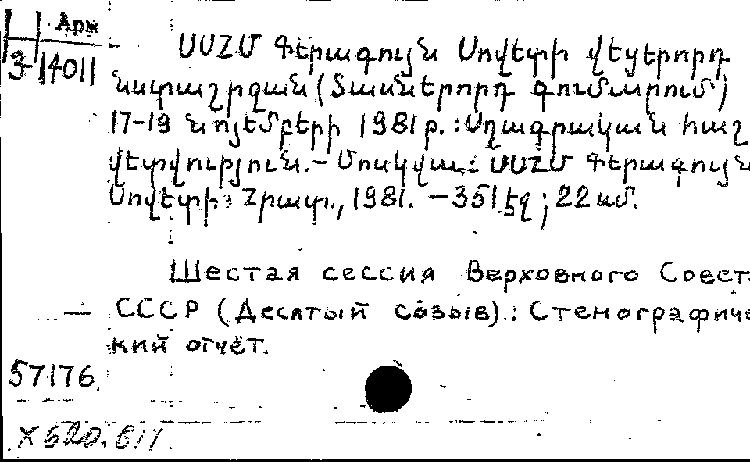 Арм
3-14011
ՍՍՀՄ Գերագույն Սովետի վեցերորդ
նստաշրջան (Տասներորդ գումարում)
17-19 նոյեմբերի 1981թ.: Սղագրական հաշ
վետվություն.- Մոսկվա: ՍՍՀՄ Գերագույն
Սովետի Հրատ., 1981. — 351 էջ; 22 սմ.
Шестая сессия Верховного Совет
— СССР (Десятый созыв): Стенографиче
кий отчёт.
57176
X 520.611